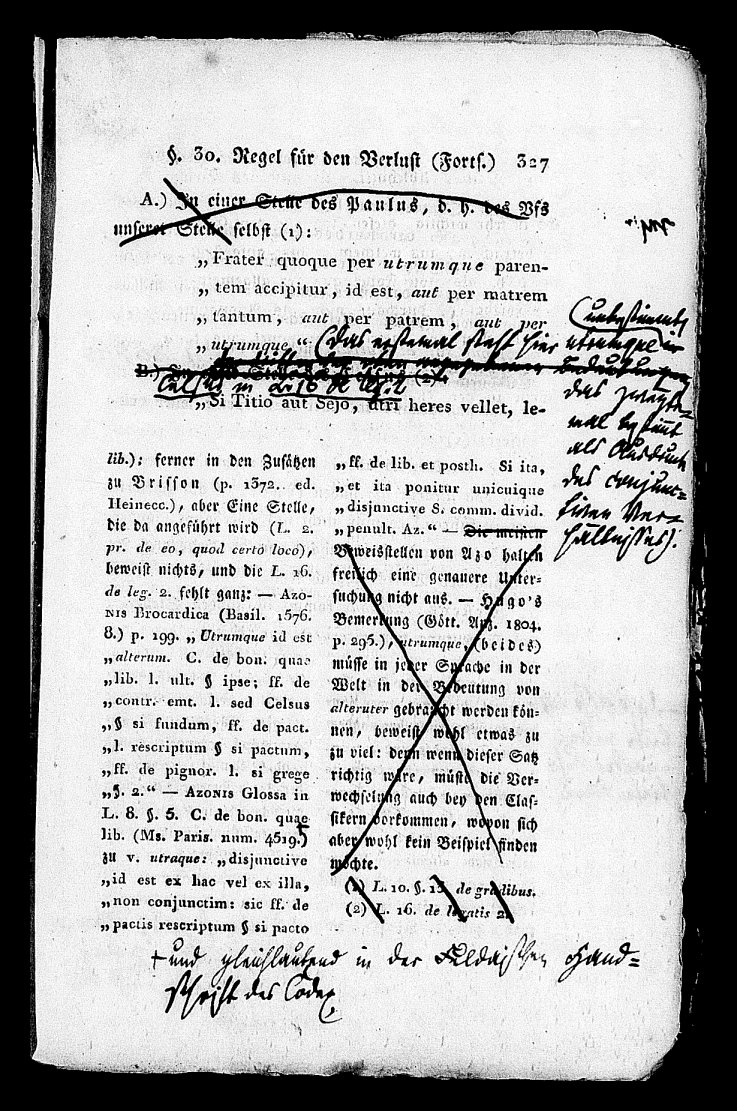 §. 30. Regel für den Verlust (Forts.) 327
A.) In einer Stelle des Paulus, d. h. des Vfs
unserer Stelle selbst (1):
„Frater quoque per utrumque paren-
„tem accipitur, id est, aut per matrem
„tantum, aut per patrem, aut per
„utrumque“ (das erstemal steht hier utrumque in
unbestimmter
Bedeutung
das zweyte-
mal bestimmt
als Ausdruck
des conjunc-
tiven Ver-
hältnisses).
B.) In
(2):
Celsus in L. 16 de leg. 2
„Si Titio aut Sejo, utri heres vellet, le-
lib.); ferner in den Zusätzen
zu Brisson (p. 1372. ed.
Heinecc.), aber Eine Stelle,
die da angeführt wird (L. 2.
pr. de eo, quod certo loco),
beweist nichts, und die L. 16.
de leg. 2. fehlt ganz: — Azo-
nis Brocardica (Basil. 1576.
8.) p. 199. „Utrumque id est
„alterum. C. de bon. quae
„lib. l. ult. § ipse; ff. de
„contr. emt. l. sed Celsus
„§ si fundum, ff. de pact.
„l. rescriptum § si pactum,
„ff. de pignor. l. si grege
„§. 2.“ — Azonis Glossa in
L. 8. §. 5. C. de bon. quae
lib. (Ms. Paris. num. 4519.) +
zu v. utraque: „disjunctive
„id est ex hac vel ex illa,
„non conjunctim: sic ff. de
„pactis rescriptum § si pacto
„ff. de lib. et posth. Si ita,
„et ita ponitur unicuique
„disjunctive S. comm. divid.
„penult. Az.“ — Die meisten
Beweisstellen von Azo halten
freilich eine genauere Unter-
suchung nicht aus. — Hugo's
Bemerkung (Gött. Anz. 1804.
p. 295.), utrumque, (beides)
müsse in jeder Sprache in der
Welt in der Bedeutung von
alteruter gebraucht werden kön-
nen, beweist wohl etwas zu
zu viel: denn wenn dieser Satz
richtig wäre, müste die Ver-
wechselung auch bey den Clas-
sikern vorkommen, wovon sich
aber wohl kein Beispiel finden
möchte.
(1) L. 10. §. 15. de gradibus.
(2) L. 16. de legatis 2.
+ und gleichlautend in der Fuldaischen Hand-
schrift des Codex